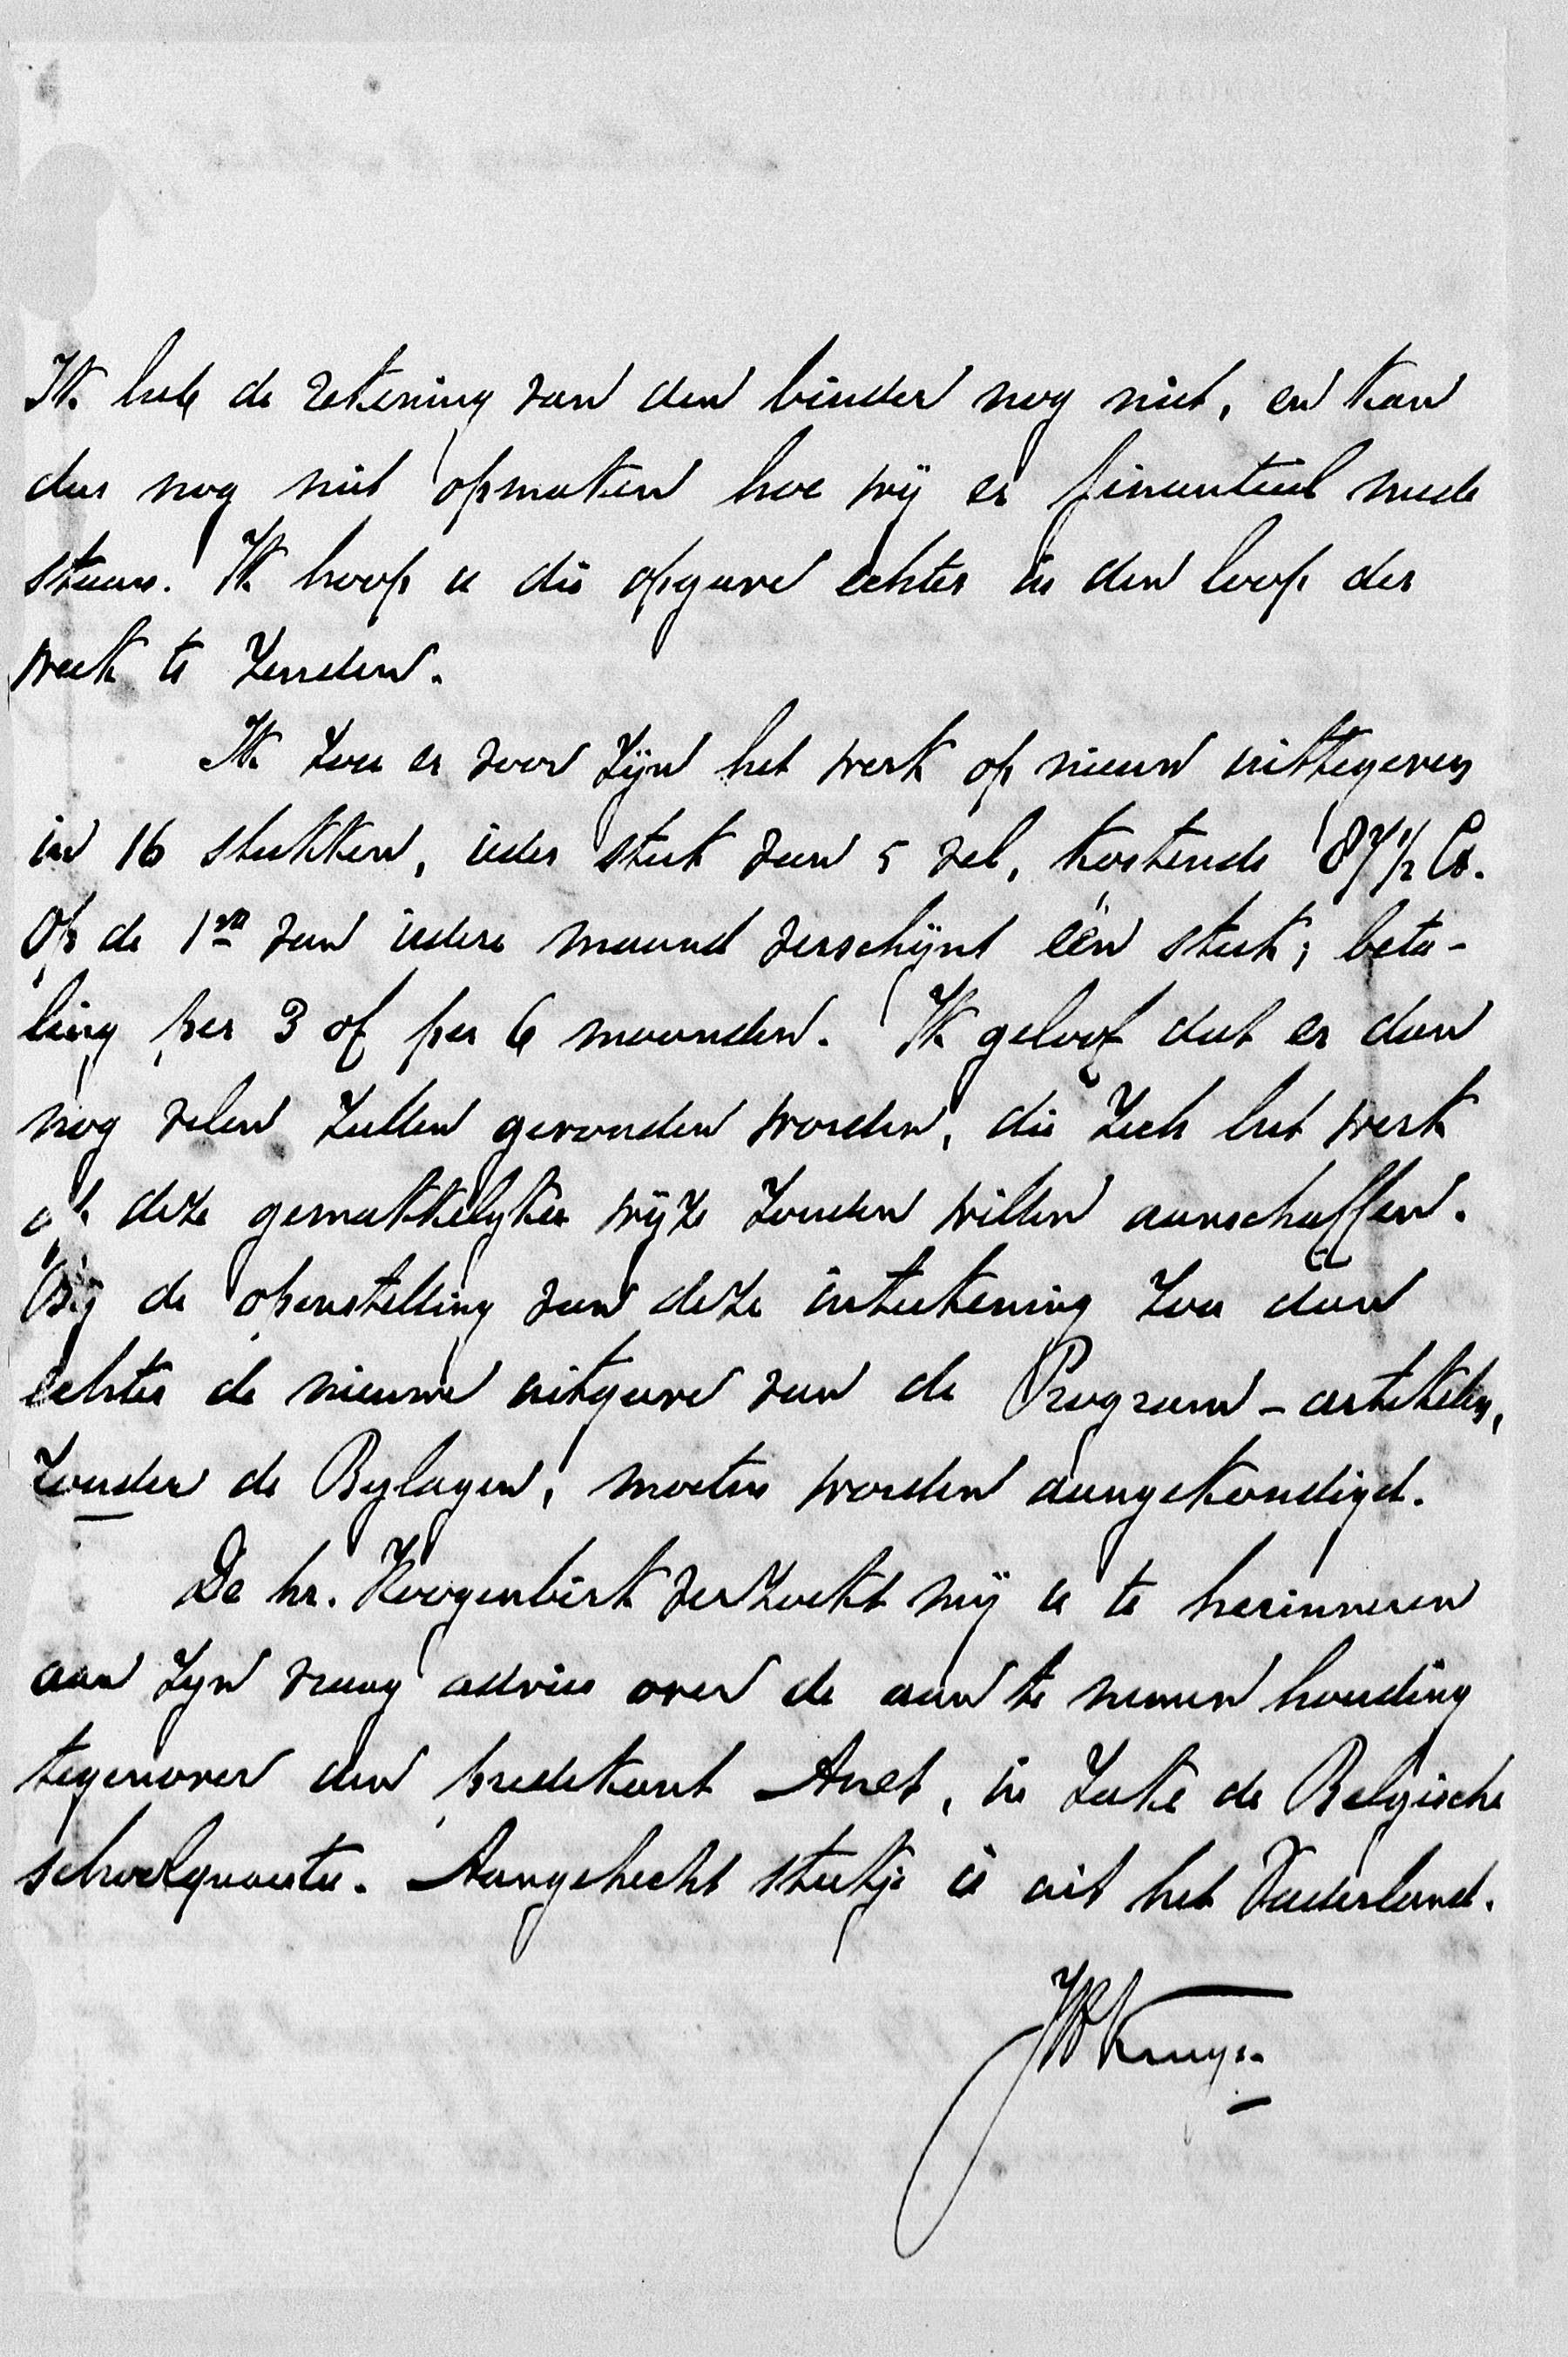 Ik heb de rekening van den binder nog niet, en kan
dus nog niet opmaken hoe wij er financieel mede
staan. Ik hoop u die opgave echter in den loop der
week te zenden.
Ik zou er voor zijn het werk op nieuw uittegeven
in 16 stukken, ieder stuk van 5 vel, kostende 87 1/2 Ct.
Op de 1en van iedere maand verschijnt één stuk; beta-
ling per 3 of per 6 maanden. Ik geloof dat er dan
nog velen zullen gevonden worden, die zich het werk
op deze gemakkelyke wijze zouden willen aanschaffen.
Bij de openstelling van deze inteekening zou dan
echter de nieuwe uitgave van de Program-artikelen,
zonder de Bylagen, moeten worden aangekondigd.
De hr. Hoogenbirk verzoekt mij u te herinneren
aan zyn vraag advies over de aan te nemen houding
tegenover den predikant Anet, in zake de Belgische
schoolquaestie. Aangehecht stukje is uit het Vaderland.
JHKruyt